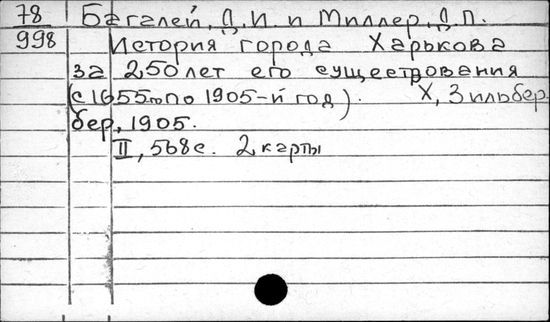 78 Багалей, Д.И. и Миллер, Д.П.
998 История города Харькова
за 250 лет его существования
(с 1655го по 1905-й год). Х, Зильбер
бер, 1905.
II, 568с. 2 карты